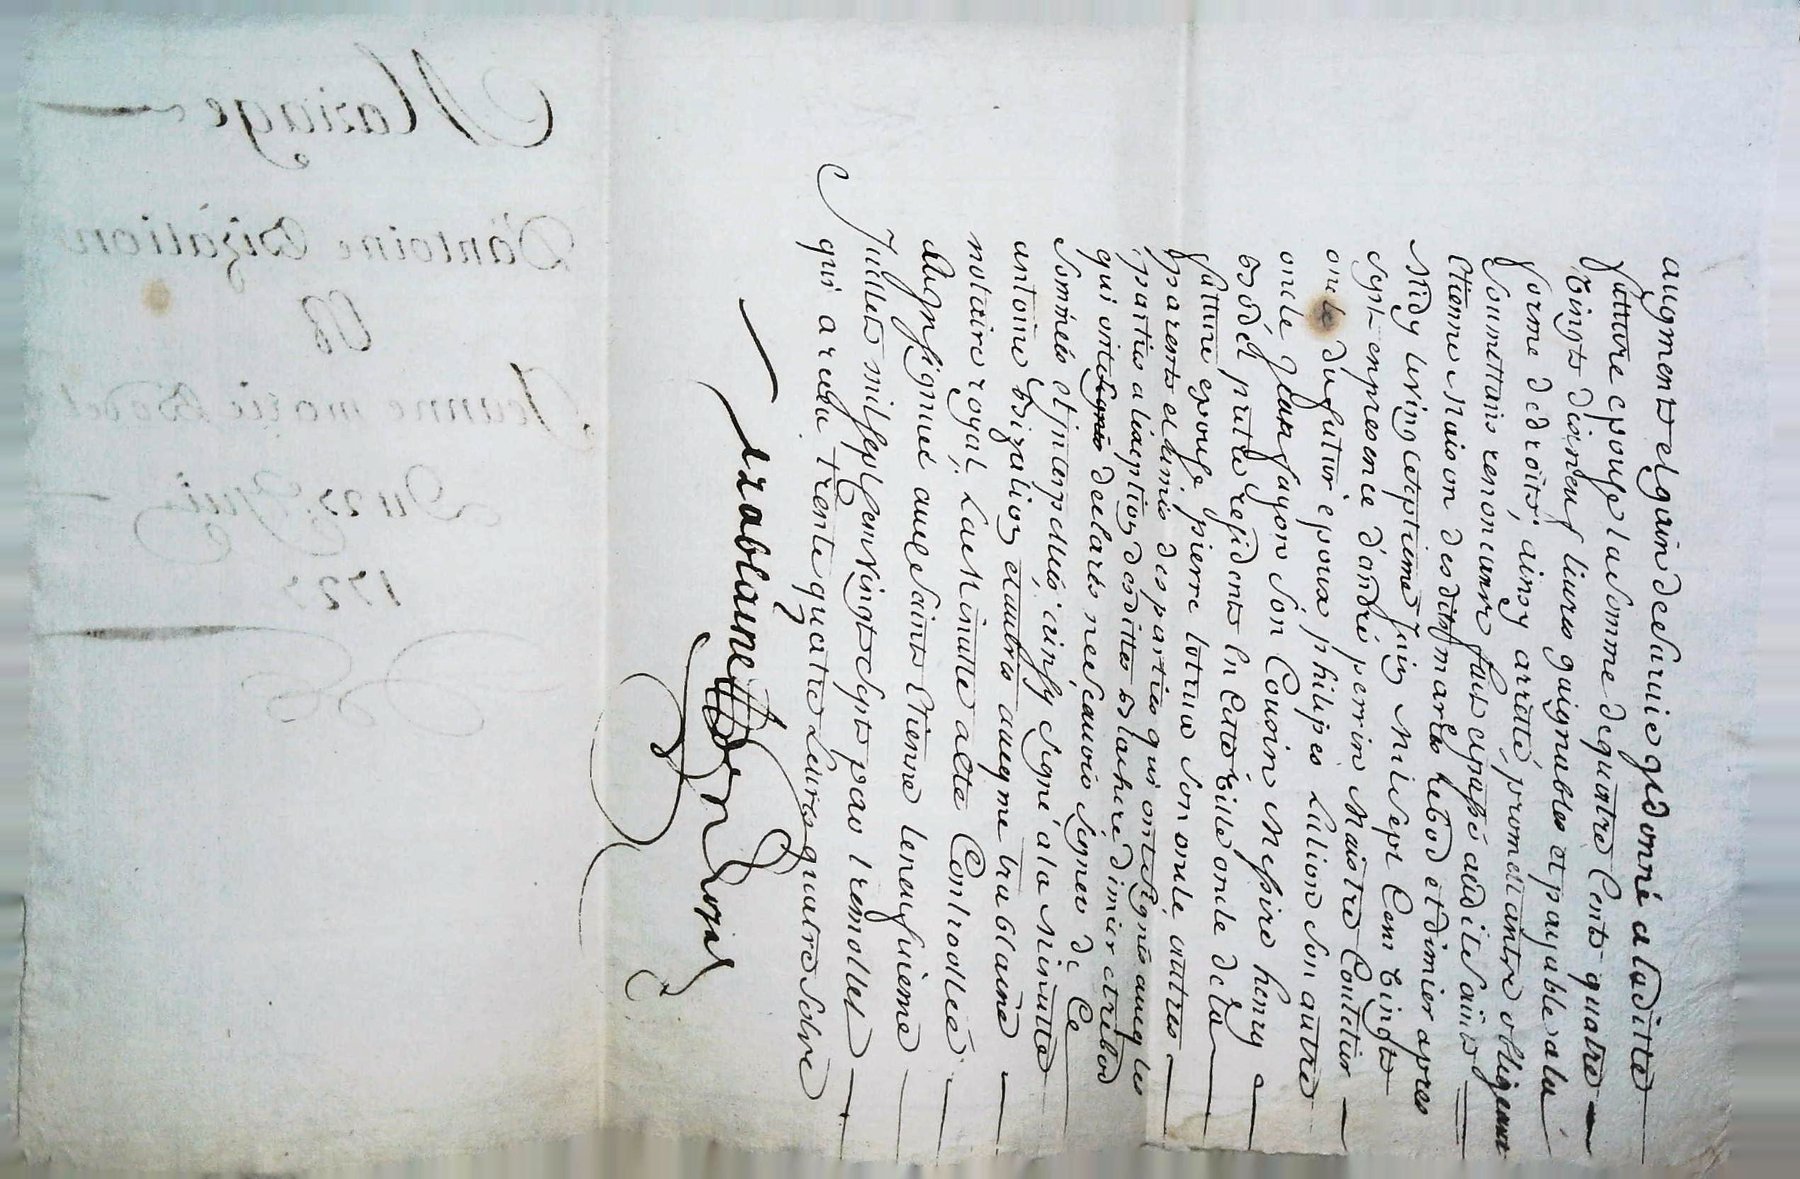 augment et gain de survie qu'a donné a laditte
future epouse la somme de quatre Cents quatre
vingts dix neuf livres gaignables et payable a la
forme de droits, ainsy arretté, promettants obligeant
soumettans renonceans fait et passé audit saint
Etienne Maison desdits mariés trébod et dimier apres
Midy le vingt septieme Juin Mil sept Cent vingts
sept en presence d'andré perrin Maistre Coutelier
oncle du futur epoux philipes Lulion son autre
oncle Jean fayon son Cousin Messire henry
bodet prêtre residents En Cette ville oncle de la
future epouse pierre lotrus son oncle, autres
parents et amis des parties qui ont signés avec les
parties a l'exeption desdittes blachere dimier et tribod
qui ont declarés ne scavoir signer de Ce
sommés et interpellés, ainsy signé a la Minutte
antoine bizalion et autres avec me trablaine
notaire royal, La Minutte a esté Controollée
Et Insignuée audit saint Etienne le neufvieme
Juillet mil sept Cent vingts sept par tremollet
qui a recu trente quatre Livres quatre sols
trablaine no.re Royal
Mariage
D'antoine Bizalion
Et
Jeanne marie Bodet
Du 27 Juin
1727